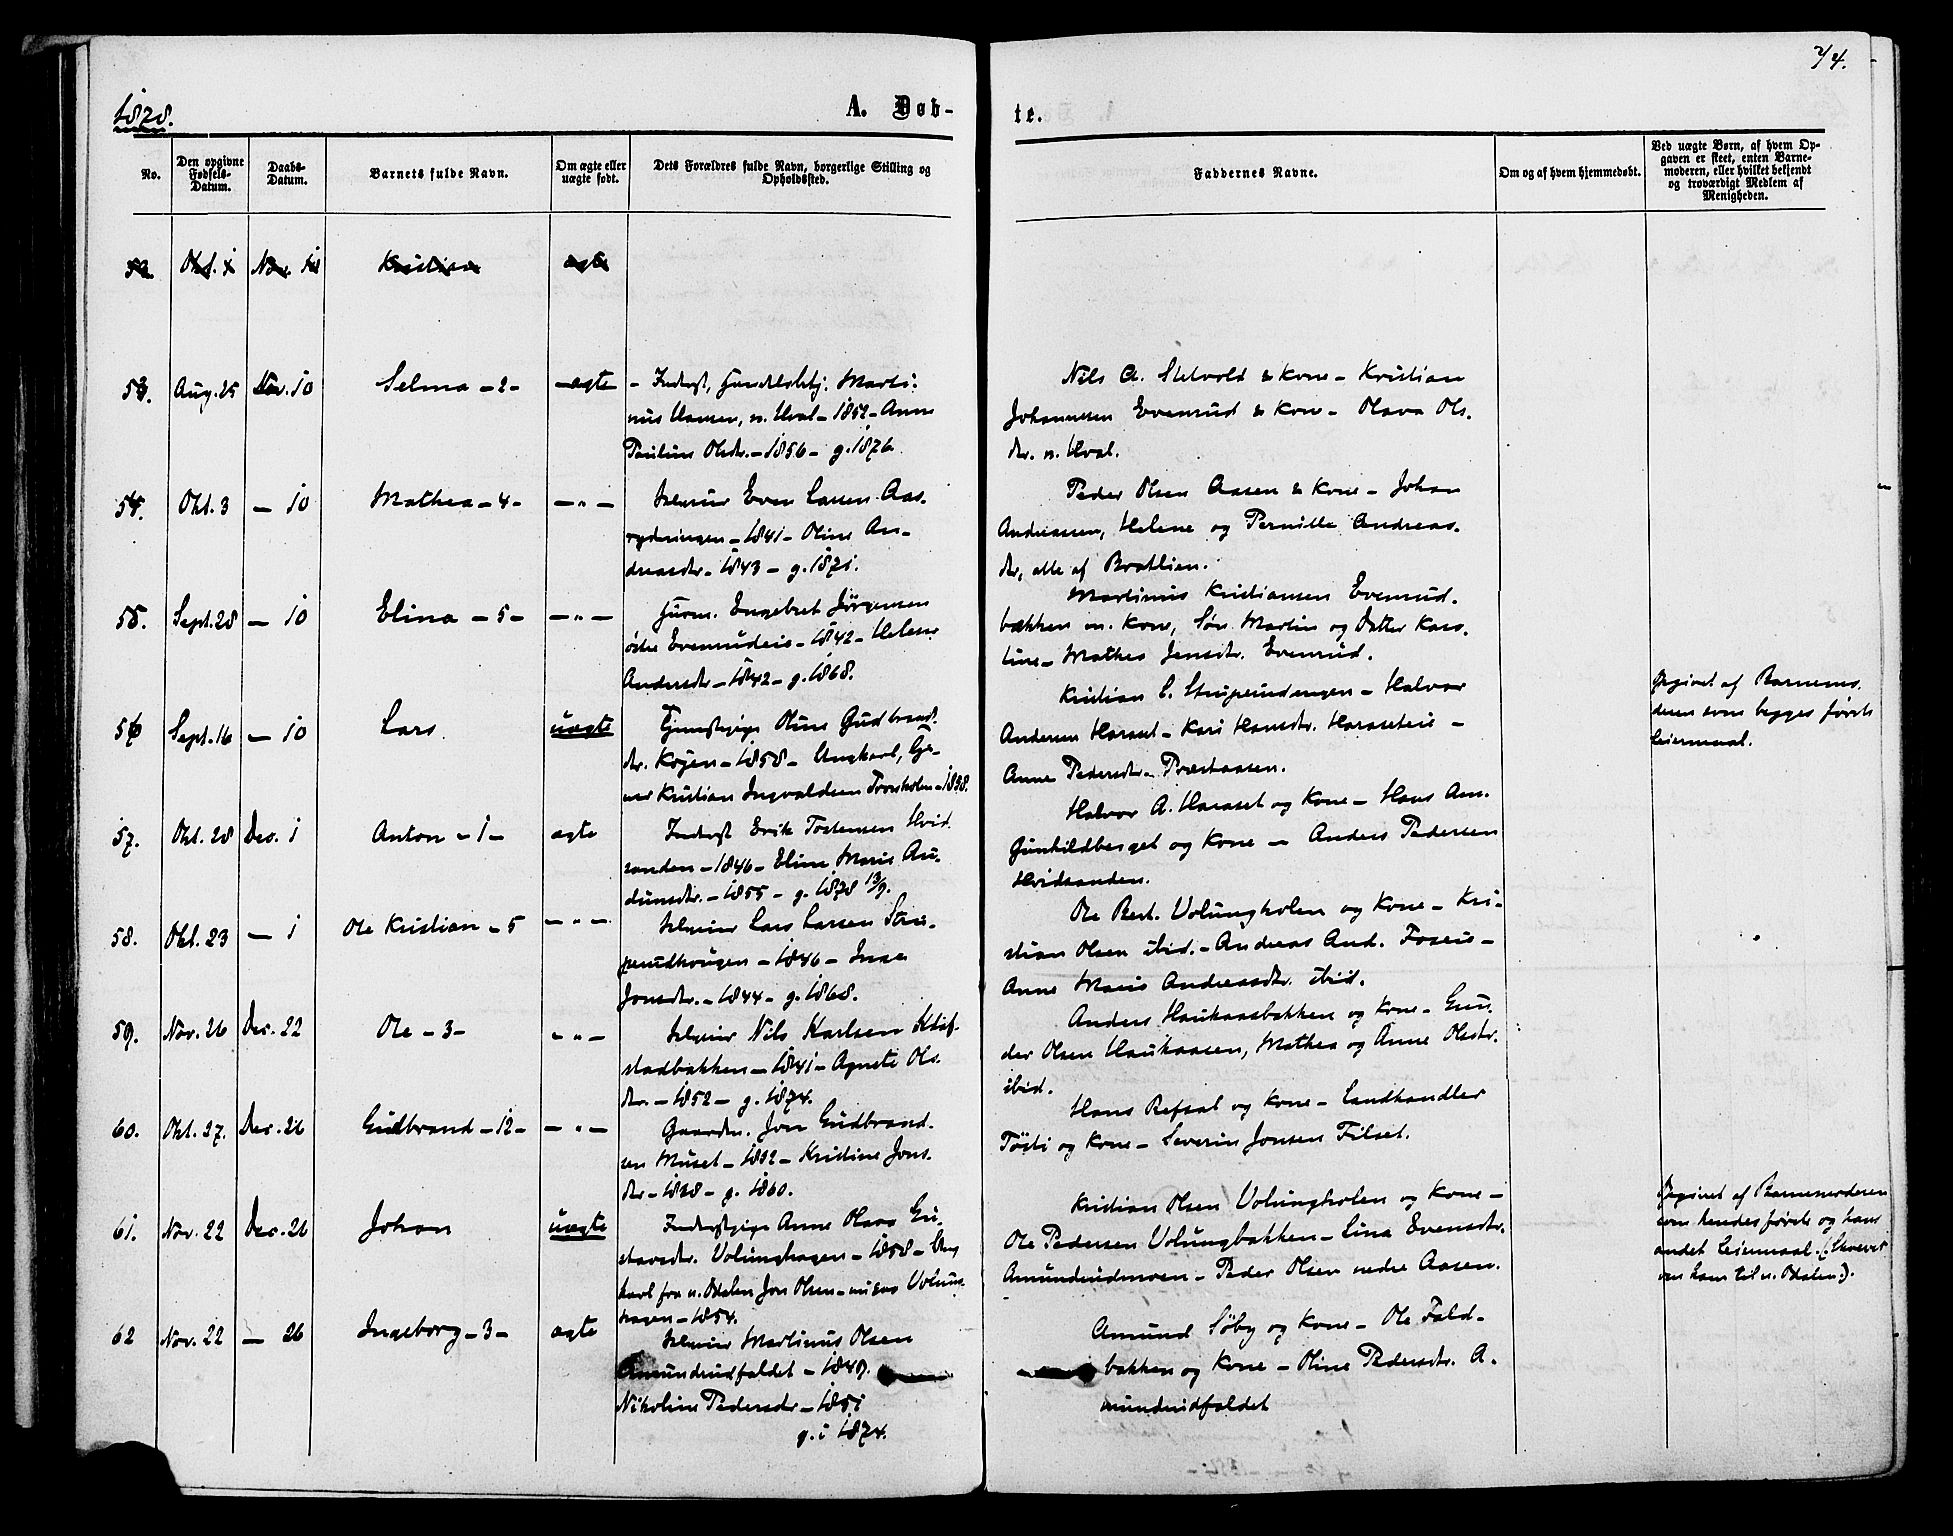 74.
1878.
A. Døb-
te.
No.
Den opgivne Fødsels-Datum.
Daabs-Datum.
Barnets fulde Navn.
Om ægte eller uægte født.
Dets Forældres fulde Navn, borgerlige Stilling og Opholdssted.
Faddernes Navne.
Om og af hvem hjemmedøbt.
Ved uægte Børn, af hvem Opgaven er skeet, enten Barnemoderen, eller hvilket bekjendt og troværdigt Medlem af Menigheden.
53. Okt. Nov. Kristian ægte
53. Aug. 25 Nov. 10 Selma - 2 - ægte
- Inderst, Martinus Hansen, n. Hval - 1852 - Anne
Pauline Olsdr. - 1856 - g. 1876.
Nils A. Stetvold & Kone - Kristian
Johannessen Evenrud & Kone - Olava Ols.
dr. n. Hval.
54. Okt. 3 - 10 Mathea - 4 - - " -
Selveier Even Larsen Aas.
rydningen - 1841 - Oline An-
dreasdr. - 1843 - g. 1871.
Peder Olsen Aasen & Kone - Johan
Andreassen, Helene og Pernille Andreas.
dr, alle af Bratlien.
55. Sept. 28 - 10 Elina - 5 - - " -
Husm. Engebret Jørgensen
østre Evenrudeie - 1842 - Helene
Andersdr. - 1842 - g. 1868.
Martinus Kristiansen Evenrud.
bakken m. Kone, Søn Martin og Datter Karo.
line - Mathea Jensdr. Evenrud.
56 Sept. 16 - 10 Lars. uægte
Tjenestpige Oline Gudbrands.
dr. Kojen - 1858 - Ungkarl,
Kristian Ingvaldsen Tronholen - 1838.
Kristian L. Struperudengen - Halvor
Andersen Haraset - Kari Hansdr. Haraseteie -
Anne Pedersdr. Præstaasen.
Opgivet af Barnemo.
deren som begges første
Leiermaal.
57. Okt. 28 Dec. 1 Anton - 1 - ægte
Inderst Erik Tostensen Hvid.
sanden - 1846 - Eline Marie Au.
dunsdr. - 1855 - g. 1878 13/9.
Halvor A. Haraset og Kone - Hans Am.
Gunhildberget og Kone - Anders Pedersen
Hvidsanden.
58. Okt. 23 - 1 Ole Kristian - 5 - " -
Selveier Lars Larsen Stru-
perudhougen - 1846 - Inger
Jonsdr. - 1844 - g. 1868.
Ole Bert. Volungholen og Kone - Kri-
stian Olsen ibid. - Andreas And. Foseie -
Anne Marie Andreasdr. ibid.
59. Nov. 26 Dec. 22 Ole - 3 - - " -
Selveier Nils Karlsen Kløf.
stadbakken - 1841 - Agnete Ols.
dr. - 1852 - g. 1874.
Anders Haukaasbakken og Kone - Gun.
der Olsen Haukaasen, Mathea og Anne Olsdr.
ibid.
60. Okt. 27. Dec. 26 Gudbrand - 12 - - " -
Gaardm. Jon Gudbrand.
sen Muset - 1832 - Kristine Jons.
dr. - 1838 - g. 1860.
Hans Refsal og Kone - Landhandler
Tøsti og Kone - Severin Jonsen Filset.
61. Nov. 22 Dec. 26 Johan uægte
Inderstpige Anne Olava Gu.
stavsdr. Volunghagen - 1858 - Ung
karl fra n. Odalen Jon Olsen - Volung.
hagen - 1854.
Kristian Olsen Volungholen og Kone -
Ole Pedersen Volungbakken - Lina Evensdr.
Amundrudmoen - Peder Olsen nedre Aasen.
Opgivet af Barnemoderen
som hendes første og hans
andet Leiermaal. (: Skrevet
om ham til n. Odalen :).
62 Nov. 22 - 26 Ingeborg - 3 - ægte
Selveier Martinus Olsen
Amundrudfaldet - 1849.
Nikoline Pedersdr. - 1851
g. i 1874.
Amund Søby og Kone - Ole Fald-
bakken og Kone - Oline Pedersdr. A.
mundrudfaldet